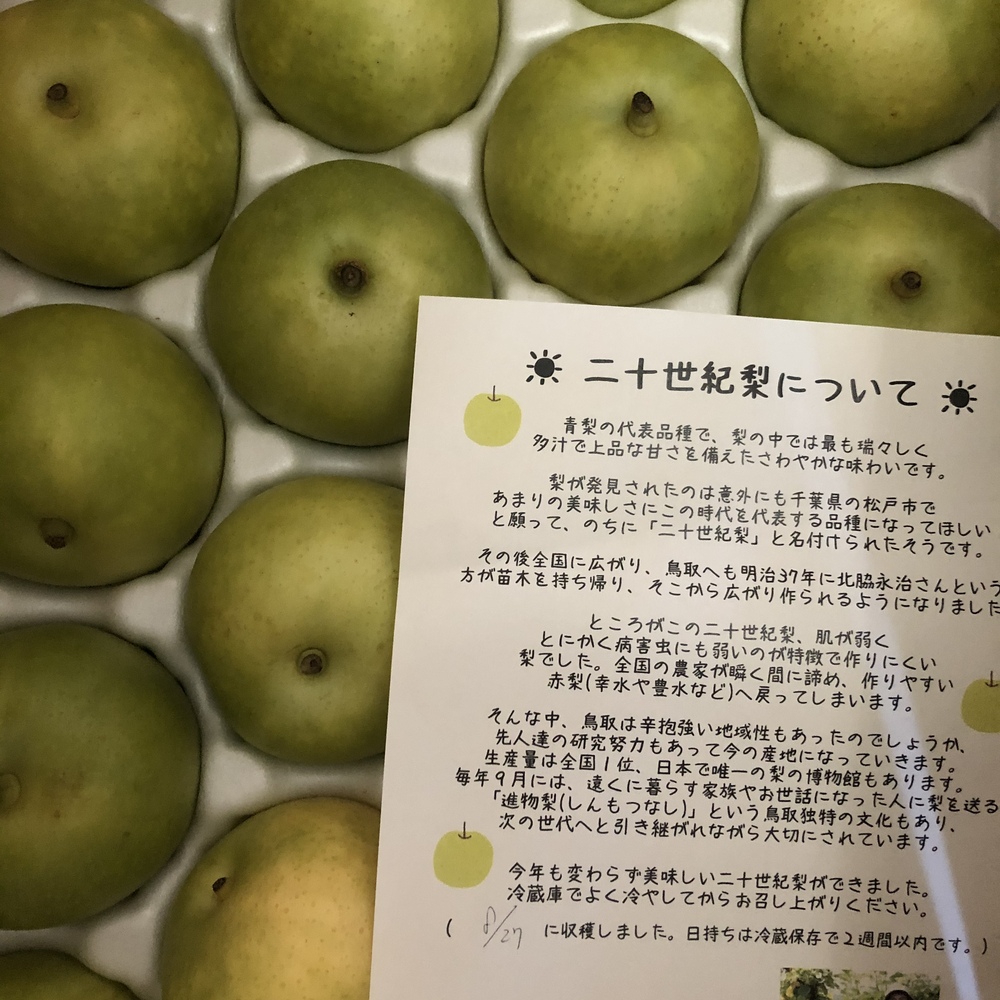 二十世紀梨について
青梨の代表品種で、梨の中では最も瑞々しく
多汁で上品な甘さを備えたさわやかな味わいです。
梨が発見されたのは意外にも千葉県の松戸市で
あまりの美味しさにこの時代を代表する品種になってほしい
と願って、のちに「二十世紀梨」と名付けられたそうです。
その後全国に広がり、鳥取へも明治37年に北脇永治さんという
方が苗木を持ち帰り、そこから広がり作られるようになりました
ところがこの二十世紀梨、肌が弱く
とにかく病害虫にも弱いのが特徴で作りにくい
梨でした。全国の農家が瞬く間に諦め、作りやすい
赤梨(幸水や豊水など)へ戻ってしまいます。
そんな中、鳥取は辛抱強い地域性もあったのでしょうか、
先人達の研究努力もあって今の産地になっていきます。
生産量は全国1位、日本で唯一の梨の博物館もあります。
毎年9月には、遠くに暮らす家族やお世話になった人に梨を送る
「進物梨(しんもつなし)」という鳥取独特の文化もあり、
次の世代へと引き継がれながら大切にされています。
今年も変わらず美味しい二十世紀梨ができました。
冷蔵庫でよく冷やしてからお召し上がりください。
( 8/27 に収穫しました。日持ちは冷蔵保存で2週間以内です。)